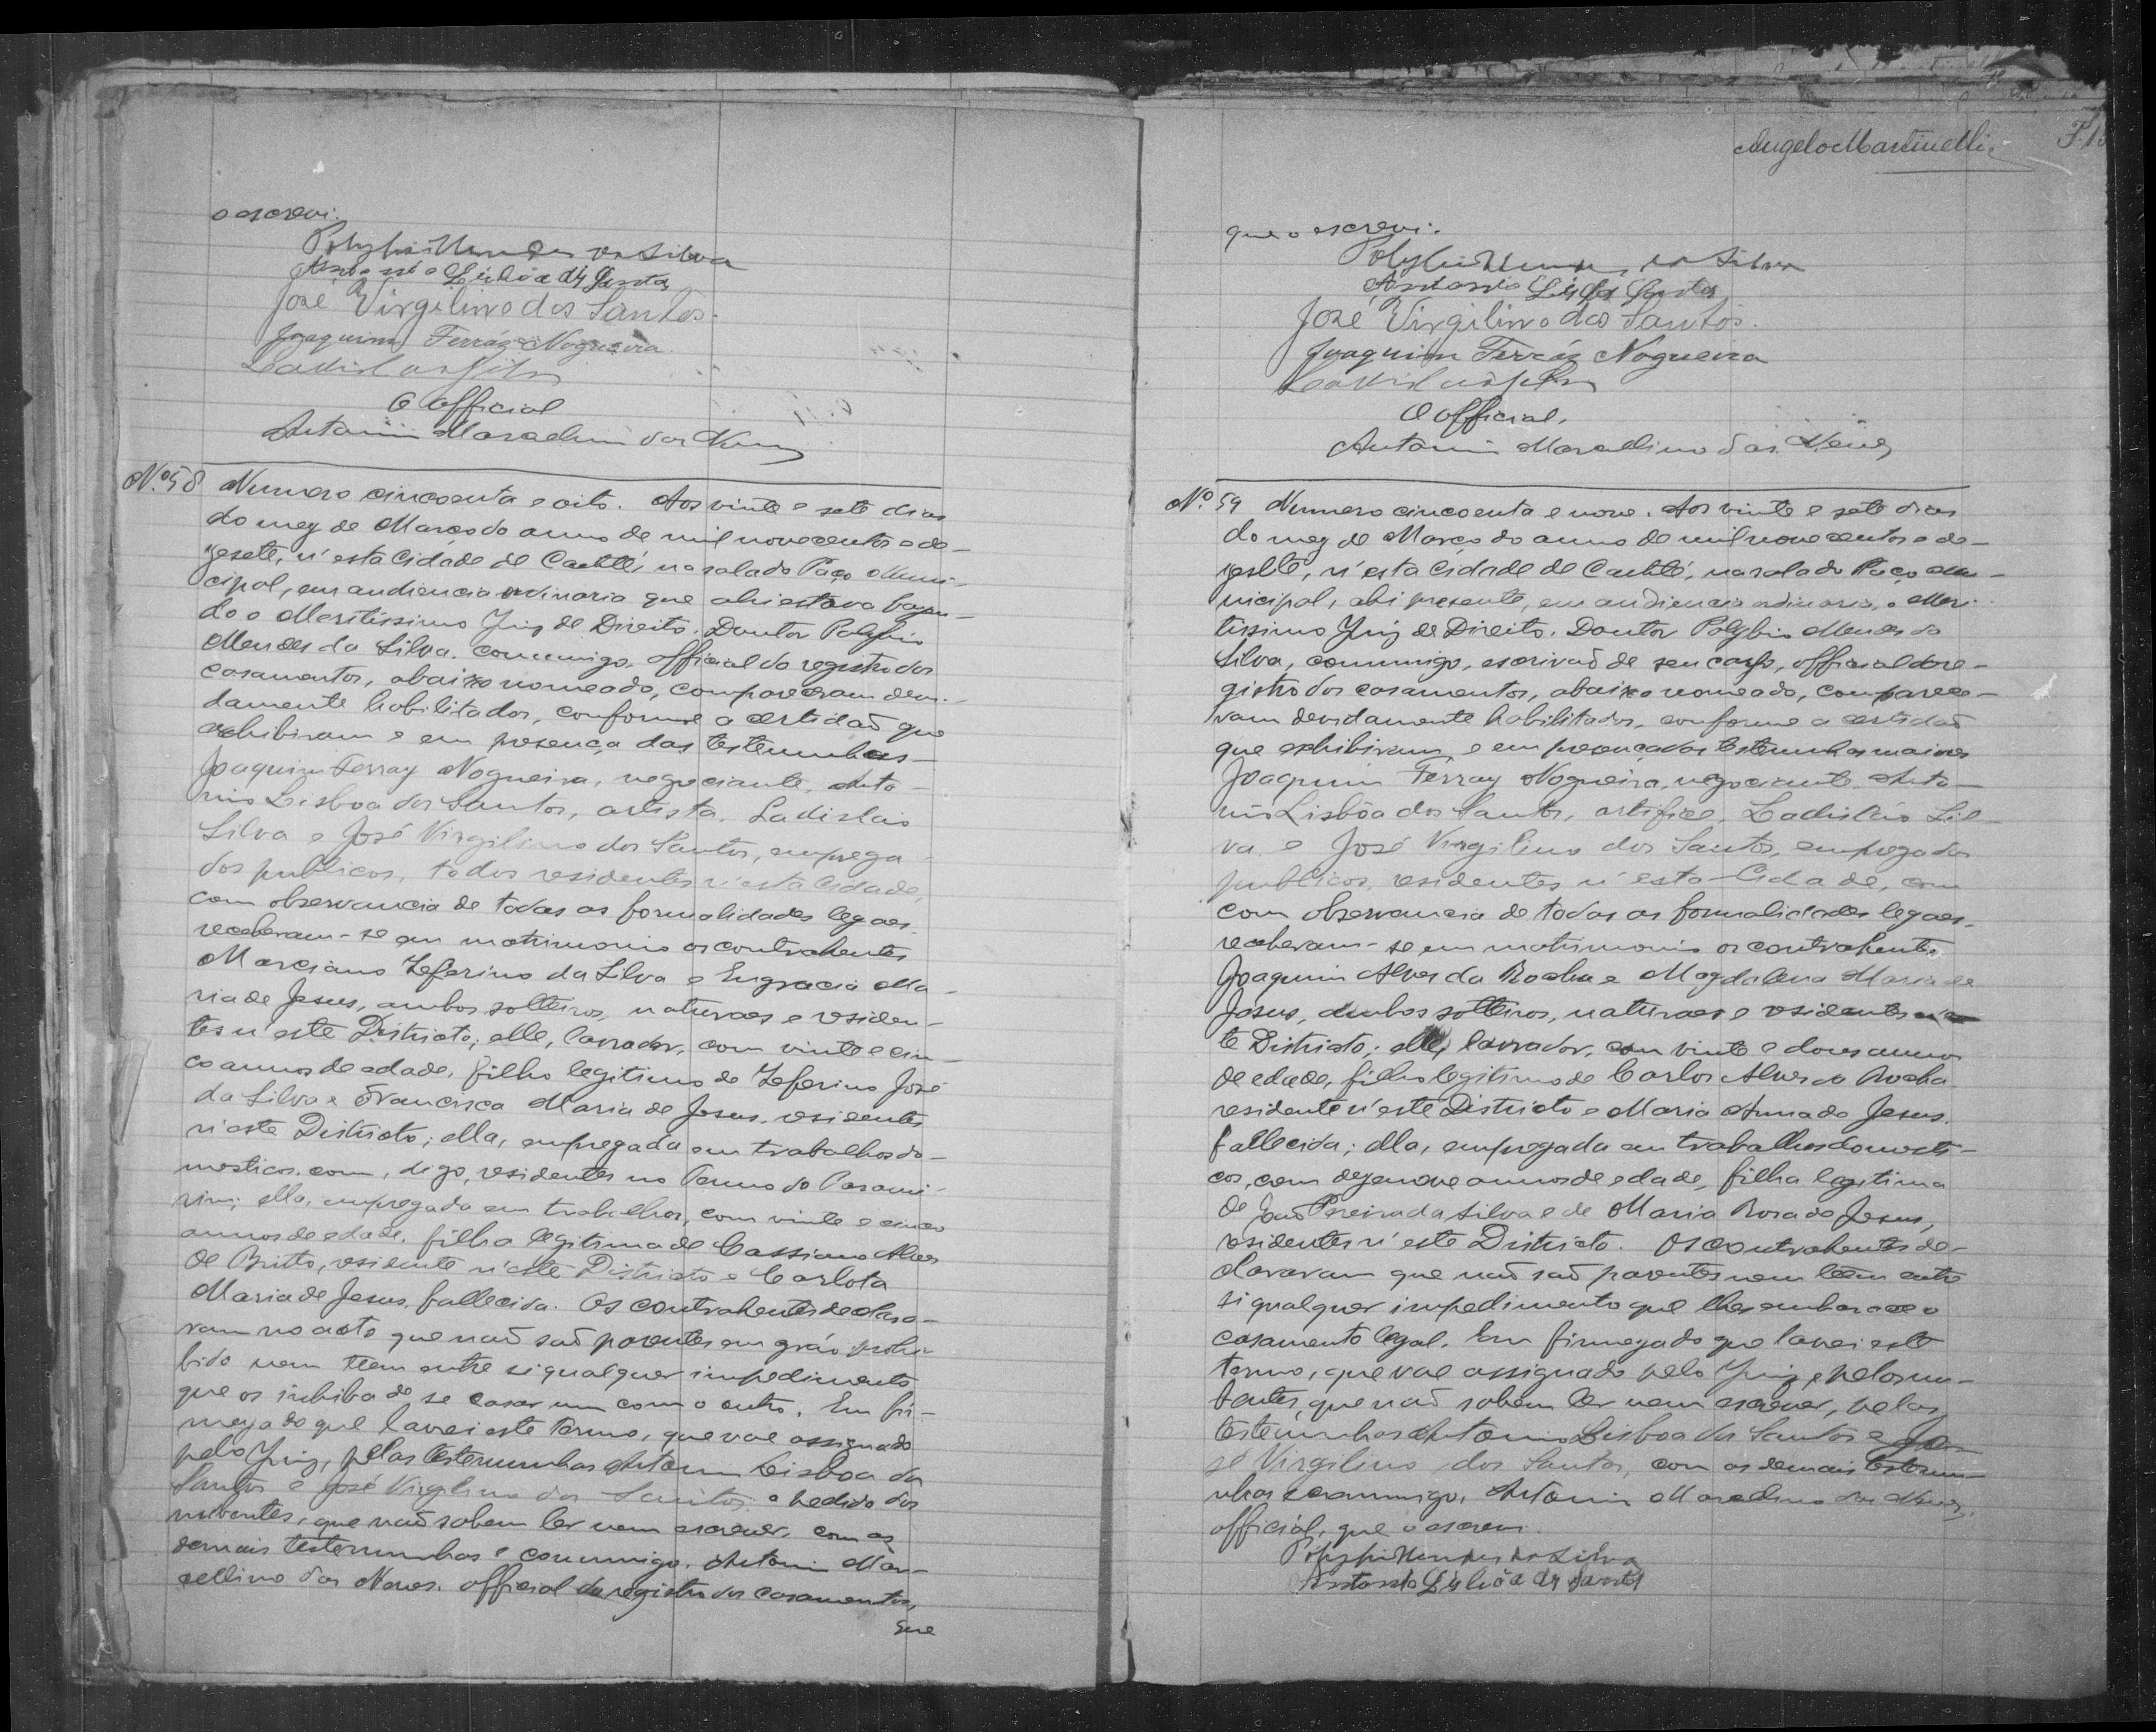 o escrevi.
Polybio Mendes da Silva
Antonio Lisbôa dos Santos
José Virgilino dos Santos.
Joaquim Ferráz Nogueira
Ladislau Silva
O official
Antonio Marcellino das Neves
Nº 58 Numero cincoenta e oito. Aos vinte e sete dias
do mez de Março do anno de mil novecentos e de-
zesete, n'esta Cidade de Caetité, na sala do Paço Muni-
cipal, em audiencia ordinaria que ahi estava fazen-
do o Meritissimo Juiz de Direito. Doutor Polybio
Mendes da Silva. commigo, official do registro dos
casamentos, abaixo nomeado, compareceram devi-
damente habilitados, conforme a certidaõ que
exhibiram e em presença das testemunhas
Joaquim Ferraz Nogueira, negociante, Anto-
nio Lisboa dos Santos, artista. Ladislaio
Silva e José Virgilino dos Santos, emprega-
dos publicos, todos residentes n'esta Cidade,
com observancia de todas as formalidades legaes,
receberam-se em matrimonio os contrahentes
Marciano Zeferino da Silva e Engracia Ma-
ria de Jesus, ambos solteiros, naturaes e residen-
tes n'este Districto; elle, lavrador, com vinte e cin-
co annos de edade, filho legitimo de Zeferino José
da Silva e Francisca Maria de Jesus, residentes
n'este Districto; ella, empregada em trabalhos do-
mesticos, com, digo, residentes no Termo do Parami-
rim; ella, empregada em trabalhos, com vinte e cinco
annos de edade, filha legitima de Cassiano Alves
de Britto, residente n'este Districto e Carlota
Maria de Jesus, fallecida. Os contrahentes declara-
ram no acto que naõ saõ parentes em gráo prohi-
bido nem teem entre si qualquer impedimento
que os inhiba de se casar um com o outro. Em fir-
meza do que lavrei este termo, que vae assignado
pelo Juiz, pelas testemunhas Antonio Lisboa dos
Santos e José Virgilino dos Santos a pedido dos
nubentes, que naõ sabem ler nem escrever, com as
demais testemunhas e commigo. Antonio Mar-
cellino das Neves. official do registro dos casamentos,
que
Angelo Martinelli
que o escrevi.
Polybio Mendes da Silva
Antonio Lisbôa dos Santos
José Virgilino dos Santos.
Joaquim Ferráz Nogueira
Ladislau Silva
O official,
Antonio Marcellino das Neves
Nº. 59 Numero cincoenta e nove. Aos vinte e sete dias
do mez de Março do anno de mil novecentos e de-
zesete, n'esta Cidade de Caetité, na sala do Paço Mu-
nicipal, ahi presente, em audiencia ordinaria, o Meri-
tissimo Juiz de Direito. Doutor Polybio Mendes da
Silva, commigo, escrivaõ de seu cargo, official do re-
gistro dos casamentos, abaixo nomeado, comparece-
ram devidamente habilitados, conforme a certidaõ
que exhibiram, e em presença das testemunhas maiores
Joaquim Ferraz Nogueira, negociante, Anto-
nio Lisbôa dos Santos, artifice, Ladislaio Sil-
va e José Virgilino dos Santos, empregados
publicos, residentes n'esta Cidade, com
com observancia de todas as formalidades legaes,
receberam-se em matrimonio os contrahentes
Joaquim Alves da Rocha e Magdalena Maria de
Jesus, ambos solteiros, naturaes e residentes n'es-
te Districto; elle, lavrador, com vinte e dous annos
de edade, filho legitimo de Carlos Alves da Rocha
residente n'este Districto e Maria Anna de Jesus,
fallecida; ella, empregada em trabalhos domesti-
cos, com dezenove annos de edade, filha legitima
de Joaõ Pereira da Silva e de Maria Rosa de Jesus,
residentes n'este Districto. Os contrahentes de-
clararam que naõ saõ parentes nem têem entre
si qualquer impedimento que lhes embarace o
casamento legal. Em firmeza do que lavrei este
termo, que vae assignado pelo Juiz, pelos nu-
bentes, que naõ sabem ler nem escrever, pelas
testemunhas Antonio Lisboa dos Santos e Jo-
sé Virgilino dos Santos, com as demais testemu-
nhas e commigo. Antonio Marcellino das Neves,
official, que o escrevi.
Polybio Mendes da Silva
Antonio Lisbôa dos Santos